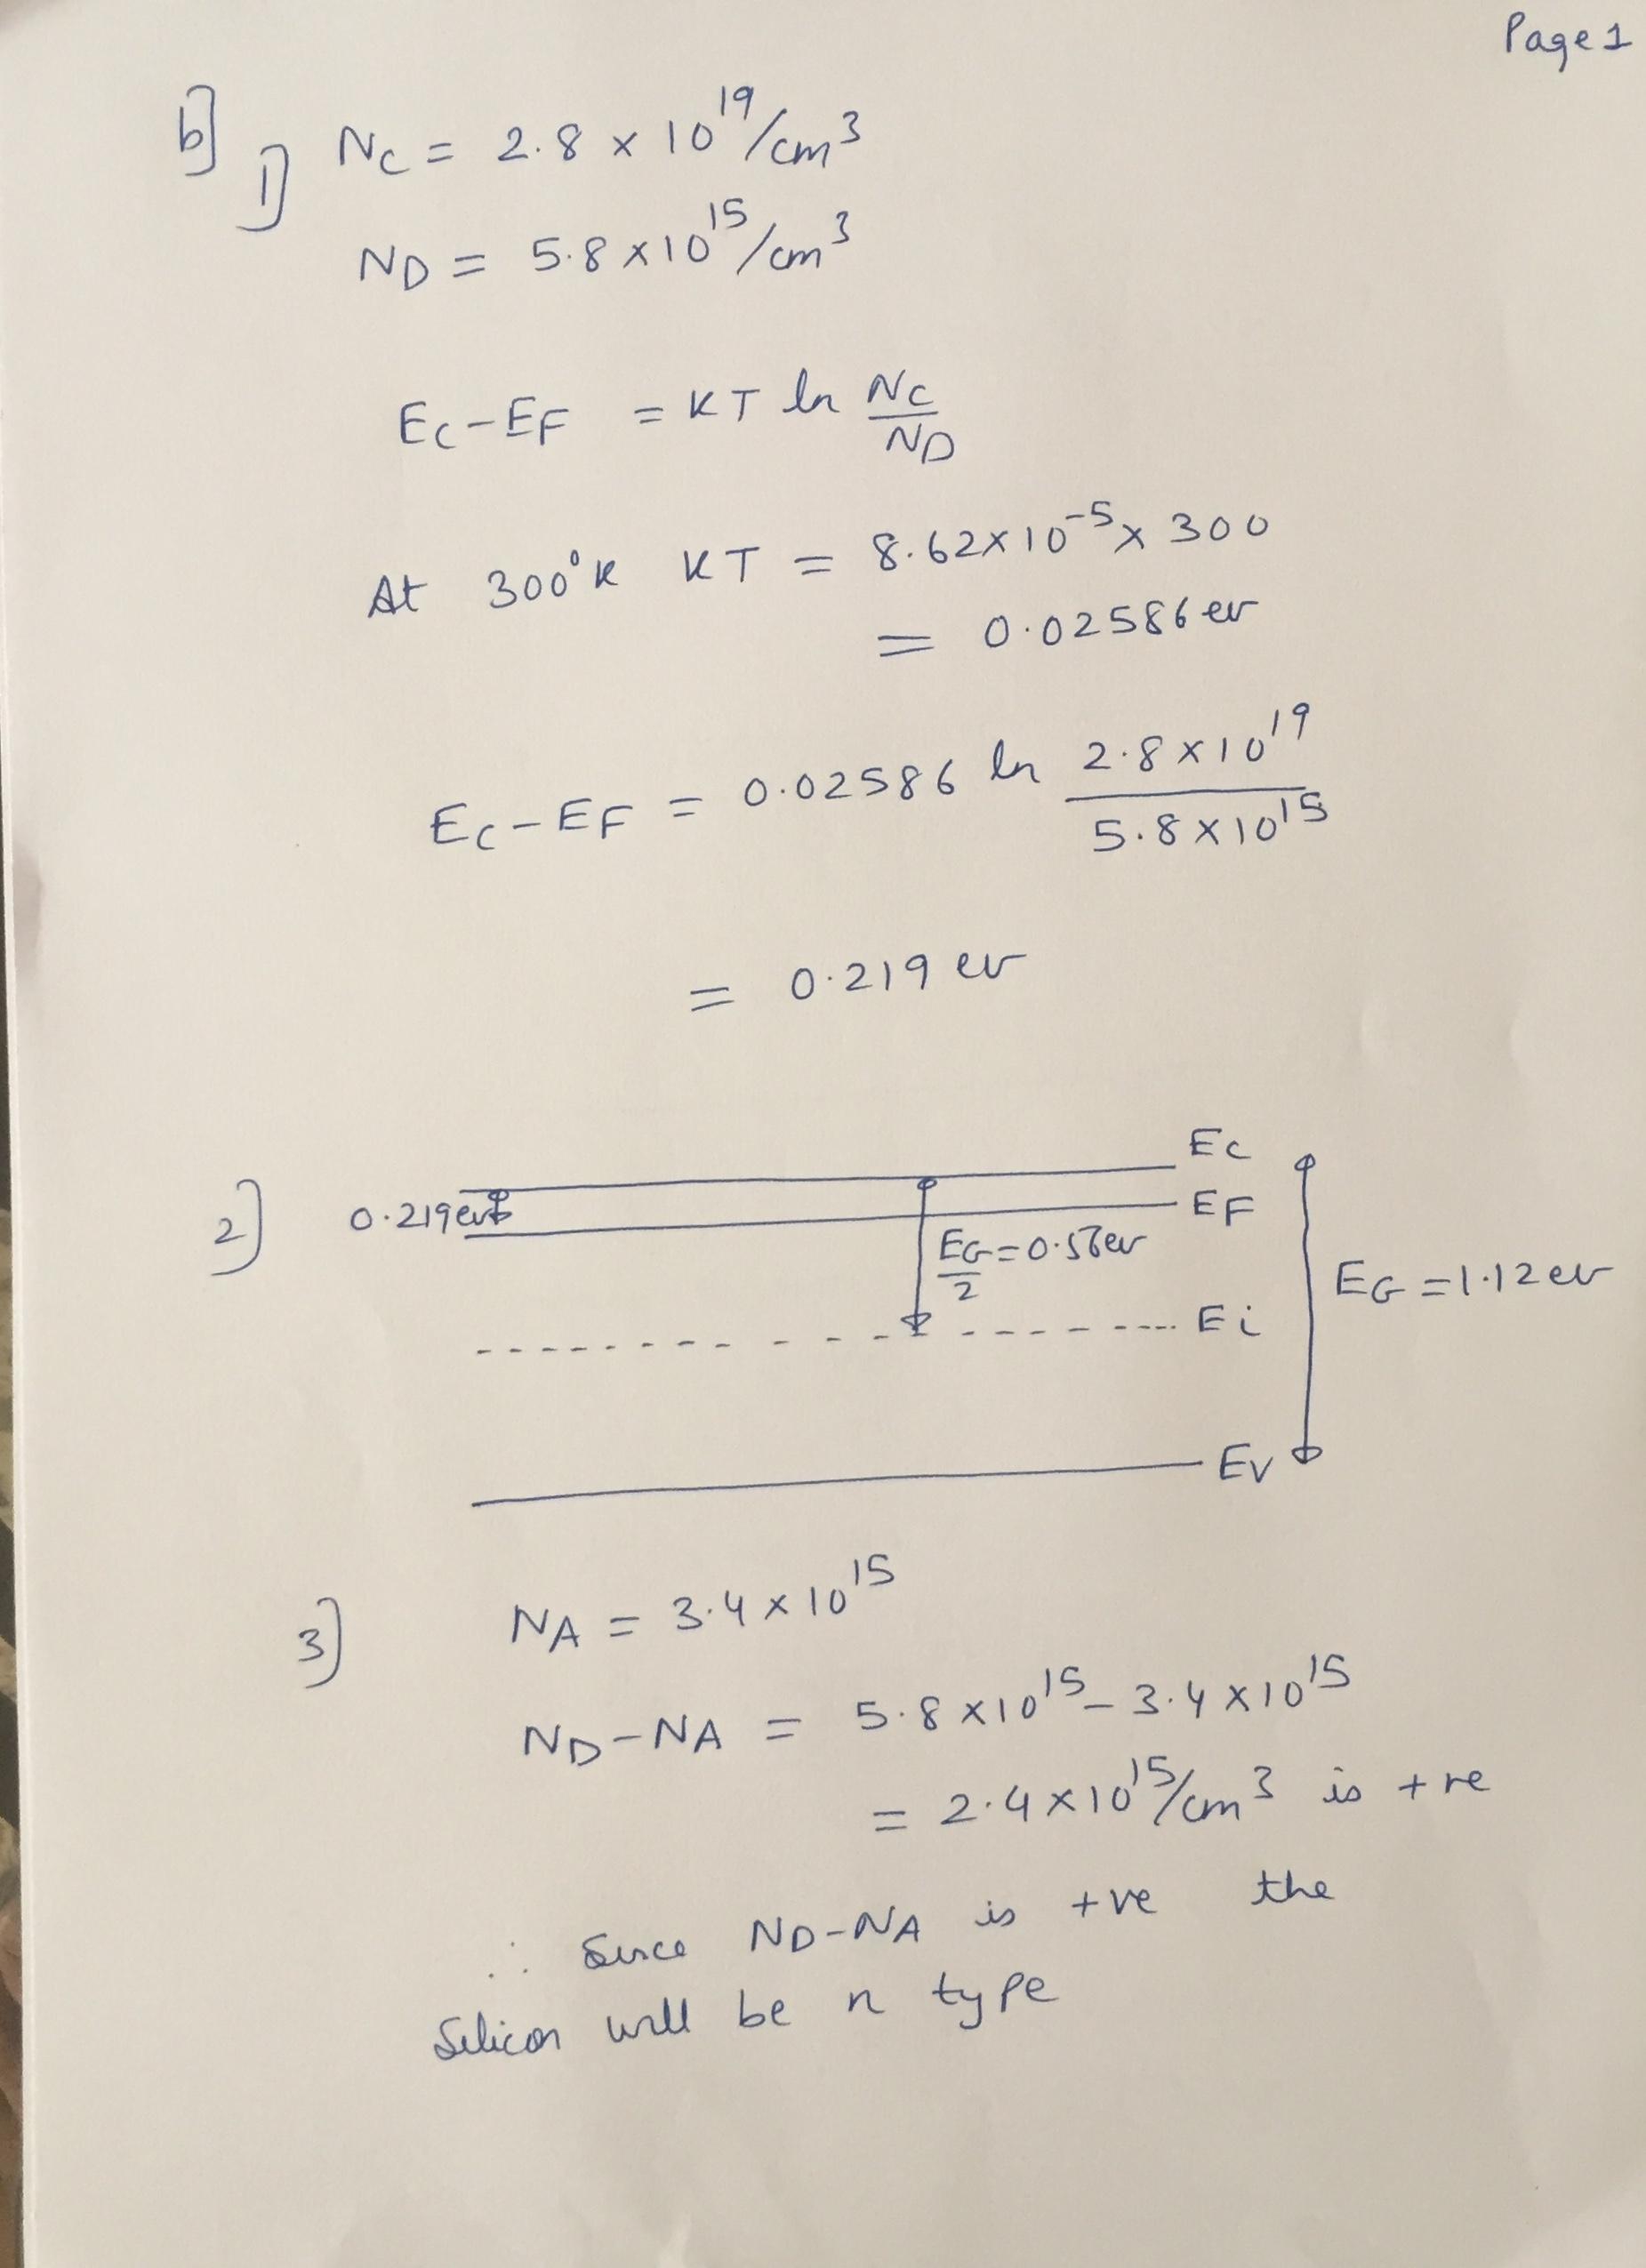 Page 1
b] 1] NC = 2.8 × 10¹⁹/cm³
ND = 5.8 × 10¹⁵/cm³
EC-EF = KT ln NC/ND
At 300°K KT = 8.62×10⁻⁵ × 300
= 0.02586 ev
EC-EF = 0.02586 ln 2.8×10¹⁹/5.8×10¹⁵
= 0.219 ev
2] 0.219ev
EC
EF
EG/2 = 0.56ev
EG = 1.12 ev
Ei
EV
3] NA = 3.4 × 10¹⁵
ND-NA = 5.8 × 10¹⁵ - 3.4 × 10¹⁵
= 2.4 × 10¹⁵/cm³ is +ve
∴ Since ND-NA is +ve the
Silicon will be n type